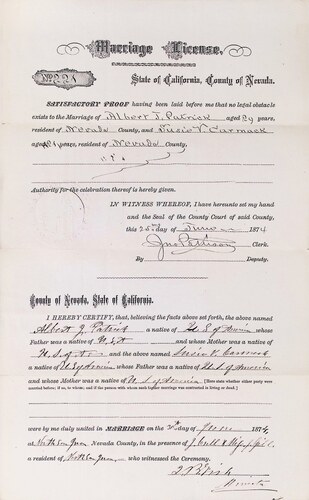 Marriage License.
State of California, County of Nevada.
SATISFACTORY PROOF having been laid before me that no legal obstacle
exists to the Marriage of Albert J. Patrick aged 29 years,
resident of Nevada County, and Susie V. Carmack
aged years, resident of Nevada County,
Authority for the celebration thereof is hereby given.
IN WITNESS WHEREOF, I have hereunto set my hand
and the Seal of the County Court of said County,
this day of June 1874
Jno Pattison Clerk.
By Deputy.
County of Nevada, State of California.
I HEREBY CERTIFY, that, believing the facts above set forth, the above named
Albert J. Patrick a native of U S of America whose
Father was a native of U.S.A and whose Mother was a native of
U.S. of A and the above named Susie V. Carmack
a native of U S of America whose Father was a native of U.S. of America
and whose Mother was a native of U S of America
were by me duly united in MARRIAGE on the day of June 1874,
at North San Juan Nevada County, in the presence of
a resident of North San Juan who witnessed the Ceremony.